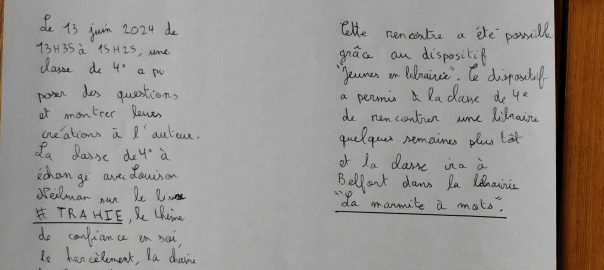 Le 13 juin 2024 de
13H35 à 15H25, une
classe de 4e a pu
poser des questions
et montrer leurs
créations à l'auteur.
La classe de 4e à
échangé avec Louison
Neilman sur le livre
# TRAHIE, le thème
de confiance en soi,
le harcèlement, la chaîne
Cette rencontre a été possible
grâce au dispositif
"Jeunes en librairie". Ce dispositif
a permis à la classe de 4e
de rencontrer une libraire
quelques semaines plus tôt
et la classe ira à
Belfort dans la librairie
"La marmite à mots".